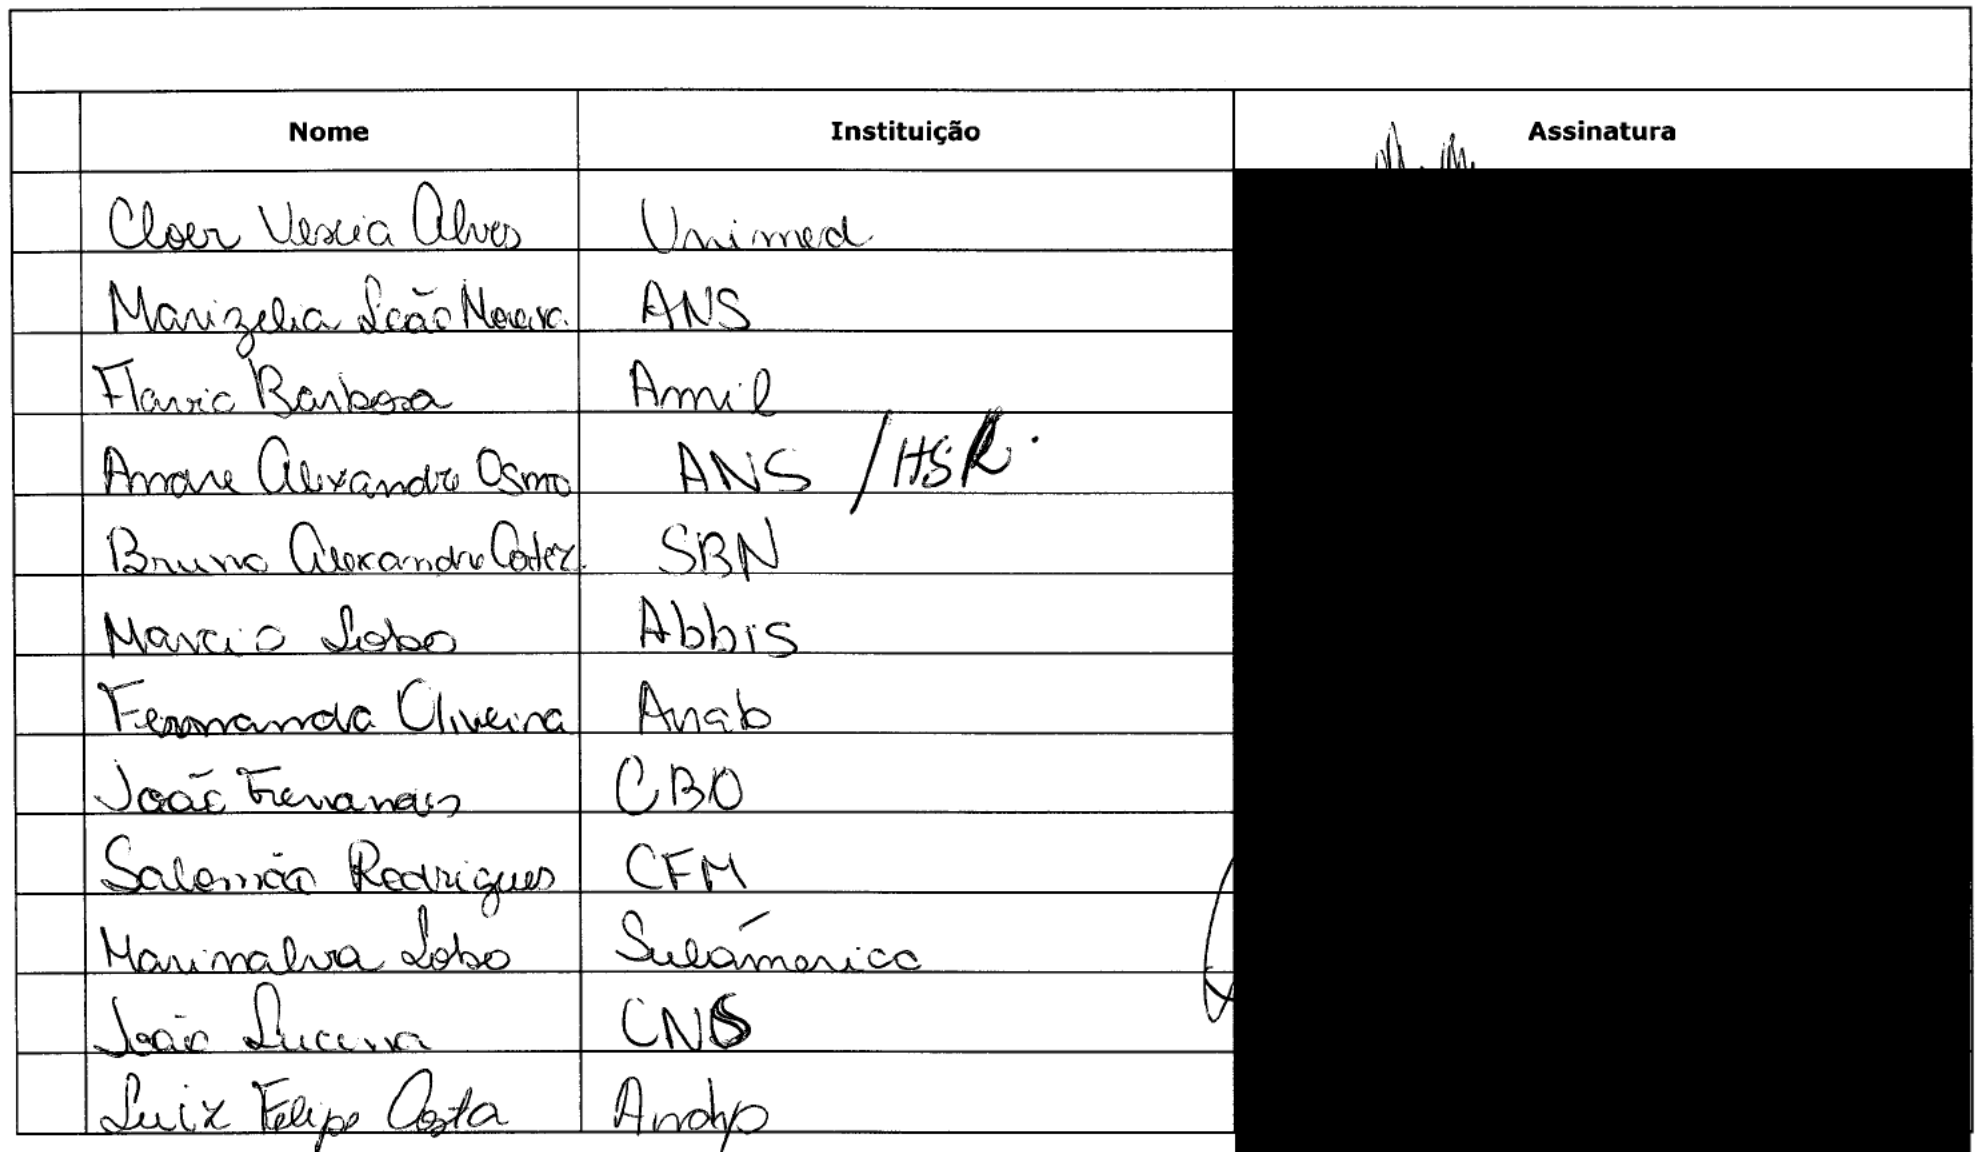 Nome Instituição Assinatura
Cloer Vescia Alves Unimed
Marizelia Leão Moreira ANS
Flavio Barbosa Amil
Amare Alexandre Osmo ANS / HSR
Bruno Alexandre Cortez SBN
Marcio Lobo Abbis
Fernanda Oliveira Anab
João Fernandes CBO
Salomão Rodrigues CFM
Marinalva Lobo Sulámerica
João Lucena CNS
Luiz Felipe Costa Andhp